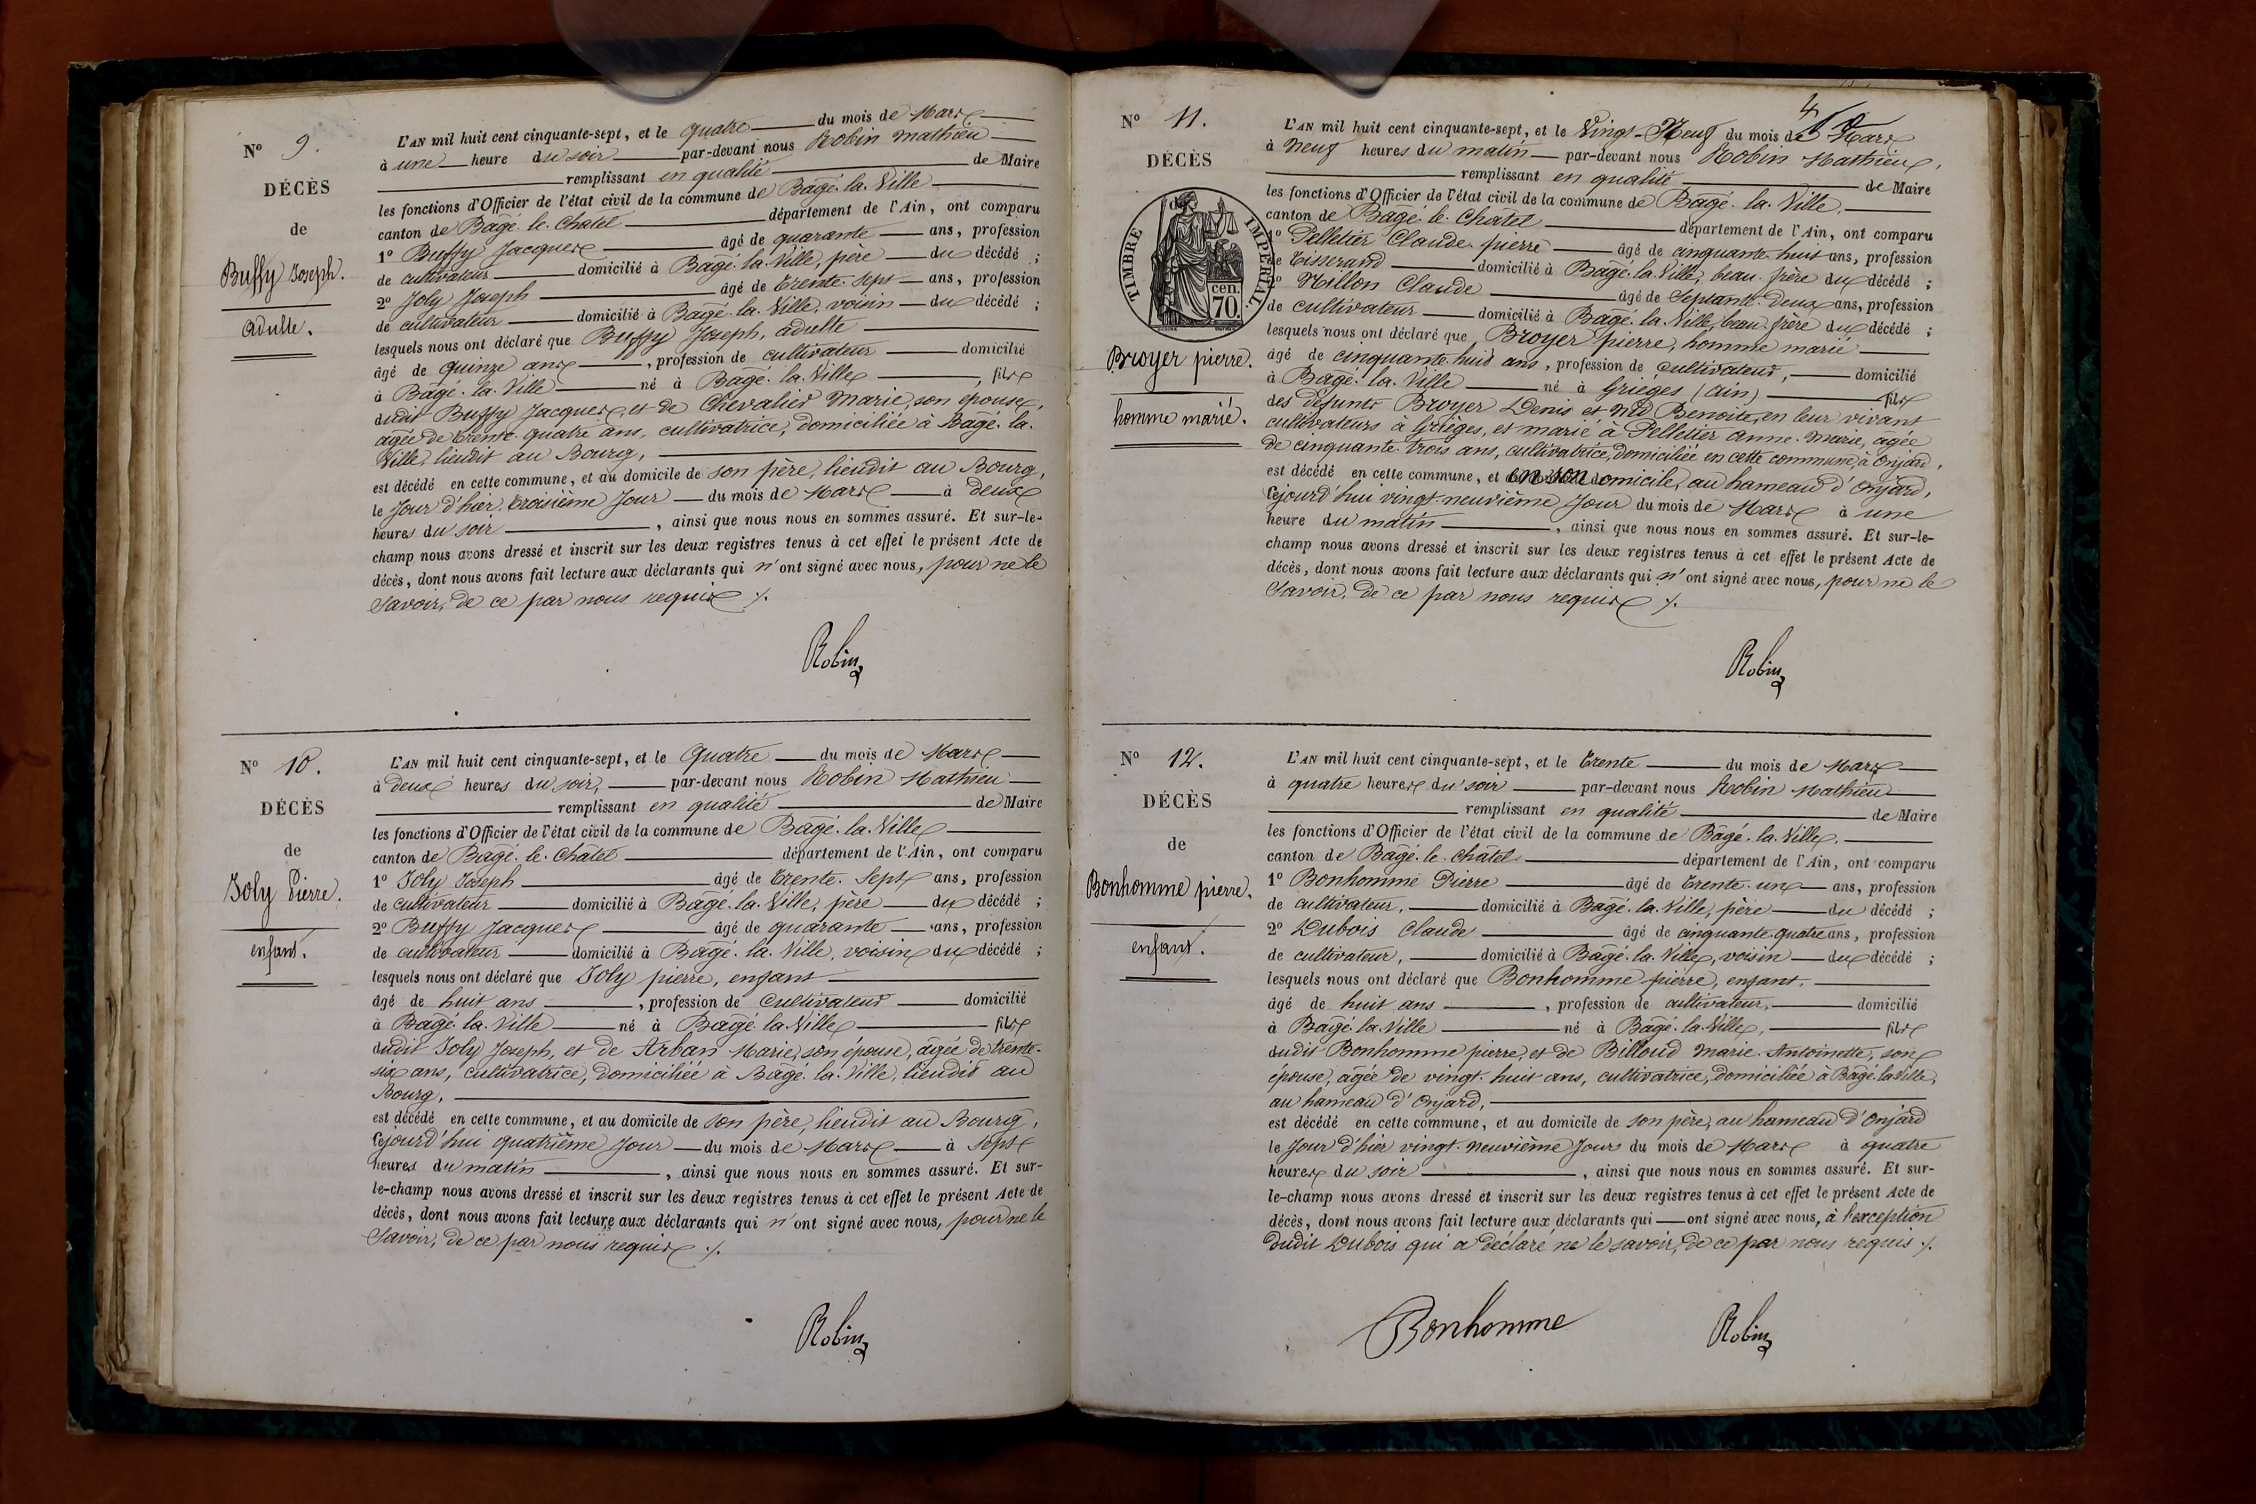 N° 9.
DÉCÈS
de
Buffy Joseph.
adulte.
L'AN mil huit cent cinquante-sept, et le quatre du mois de Mars
à une heure du soir par-devant nous Robin Mathieu
remplissant en qualité de Maire
les fonctions d'Officier de l'état civil de la commune de Bâgé-la-Ville
canton de Bâgé-le-Châtel département de l'Ain, ont comparu
1° Buffy Jacques âgé de quarante ans, profession
de cultivateur domicilié à Bâgé-la-Ville, père du décédé ;
2° Joly Joseph âgé de trente-sept ans, profession
de cultivateur domicilié à Bâgé-la-Ville, voisin du décédé ;
lesquels nous ont déclaré que Buffy Joseph, adulte
âgé de quinze ans, profession de cultivateur domicilié
à Bâgé-la-Ville né à Bâgé-la-Ville, fils
dudit Buffy Jacques, et de Chevalier Marie, son épouse,
agée de trente-quatre ans, cultivatrice, domiciliée à Bâgé-la-
Ville, lieudit au Bourg,
est décédé en cette commune, et au domicile de son père, lieudit au Bourg,
le jour d'hier, troisième jour du mois de Mars à deux
heures du soir, ainsi que nous nous en sommes assuré. Et sur-le-
champ nous avons dressé et inscrit sur les deux registres tenus à cet effet le présent Acte de
décès, dont nous avons fait lecture aux déclarants qui n'ont signé avec nous, pour ne le
savoir, de ce par nous requis ./.
Robin
N° 10.
DÉCÈS
de
Joly Pierre.
enfant.
L'AN mil huit cent cinquante-sept, et le Quatre du mois de Mars
à deux heures du soir, par-devant nous Robin Mathieu
remplissant en qualité de Maire
les fonctions d'Officier de l'état civil de la commune de Bâgé-la-Ville
canton de Bâgé-le-Châtel département de l'Ain, ont comparu
1° Joly Joseph âgé de trente-sept ans, profession
de cultivateur domicilié à Bâgé-la-Ville, père du décédé ;
2° Buffy Jacques âgé de quarante ans, profession
de cultivateur domicilié à Bâgé-la-Ville, voisin du décédé ;
lesquels nous ont déclaré que Joly pierre, enfant
âgé de huit ans, profession de Cultivateur domicilié
à Bâgé-la-Ville né à Bâgé-la-Ville fils
dudit Joly Joseph, et de Arban Marie, son épouse, agée de trente-
six ans, cultivatrice, domiciliée à Bâgé-la-Ville, lieudit au
Bourg,
est décédé en cette commune, et au domicile de son père, lieudit au Bourg,
Cejourd'hui quatrième jour du mois de Mars à sept
heures du matin, ainsi que nous nous en sommes assuré. Et sur-
le-champ nous avons dressé et inscrit sur les deux registres tenus à cet effet le présent Acte de
décès, dont nous avons fait lecture aux déclarants qui n'ont signé avec nous, pour ne le
savoir, de ce par nous requis ./.
Robin
N° 11.
DÉCÈS
de
TIMBRE IMPÉRIAL
cen.
70.
Broyer pierre.
homme marié.
L'AN mil huit cent cinquante-sept, et le Vingt-Neuf du mois de Mars
à Neuf heures du matin par-devant nous Robin Mathieu,
remplissant en qualité de Maire
les fonctions d'Officier de l'état civil de la commune de Bâgé-la-Ville,
canton de Bâgé-le-Châtel département de l'Ain, ont comparu
1° Pelletier Claude-pierre âgé de cinquante-huit ans, profession
de Tisserand domicilié à Bâgé-la-Ville, beau-frère du décédé ;
2° Millon Claude âgé de Septante-deux ans, profession
de cultivateur domicilié à Bâgé-la-Ville, beau-frère du décédé ;
lesquels nous ont déclaré que Broyer pierre, homme marié
âgé de cinquante-huit ans, profession de cultivateur, domicilié
à Bâgé-la-Ville né à Grièges (Ain) fils
des défunts Broyer Denis et Benoite, en leur vivant
cultivateurs à Grièges, et marié à Pelletier Anne-Marie, agée
de cinquante-trois ans, cultivatrice, domiciliée en cette commune, à Onjard,
est décédé en cette commune, et en son domicile, au hameau d'Onjard,
Cejourd'hui vingt-neuvième jour du mois de Mars à une
heure du matin, ainsi que nous nous en sommes assuré. Et sur-le-
champ nous avons dressé et inscrit sur les deux registres tenus à cet effet le présent Acte de
décès, dont nous avons fait lecture aux déclarants qui n'ont signé avec nous, pour ne le
savoir, de ce par nous requis ./.
Robin
N° 12.
DÉCÈS
de
Bonhomme pierre.
enfant.
L'AN mil huit cent cinquante-sept, et le trente du mois de Mars
à quatre heures du soir par-devant nous Robin Mathieu
remplissant en qualité de Maire
les fonctions d'Officier de l'état civil de la commune de Bâgé-la-Ville,
canton de Bâgé-le-Châtel département de l'Ain, ont comparu
1° Bonhomme Pierre âgé de trente-un ans, profession
de cultivateur, domicilié à Bâgé-la-Ville, père du décédé ;
2° Dubois Claude âgé de cinquante-quatre ans, profession
de cultivateur, domicilié à Bâgé-la-Ville, voisin du décédé ;
lesquels nous ont déclaré que Bonhomme pierre, enfant,
âgé de huit ans, profession de cultivateur, domicilié
à Bâgé-la-Ville né à Bâgé-la-Ville, fils
dudit Bonhomme pierre, et de Billoud Marie-Antoinette, son
épouse, agée de vingt-huit ans, cultivatrice, domiciliée à Bâgé-la-Ville,
au hameau d'Onjard,
est décédé en cette commune, et au domicile de son père, au hameau d'Onjard
le jour d'hier vingt-neuvième jour du mois de Mars à quatre
heures du soir, ainsi que nous nous en sommes assuré. Et sur-
le-champ nous avons dressé et inscrit sur les deux registres tenus à cet effet le présent Acte de
décès, dont nous avons fait lecture aux déclarants qui ont signé avec nous, à l'exception
dudit Dubois qui a déclaré ne le savoir, de ce par nous requis ./.
Bonhomme
Robin